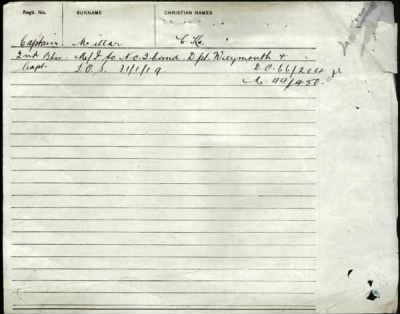 Regtl. No. SURNAME CHRISTIAN NAMES
Captain. Millar C. Ho.
2nd Bn. M/I to No 2 Cmd. Dpt. Weymouth &
Capt. T.O.S. 31/1/19 D.O. 66/2011
M. 44/450.